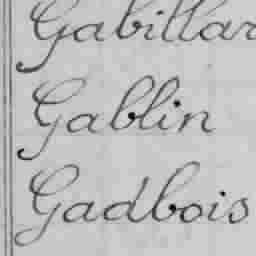 Gabillar
Gablin
Gadbois